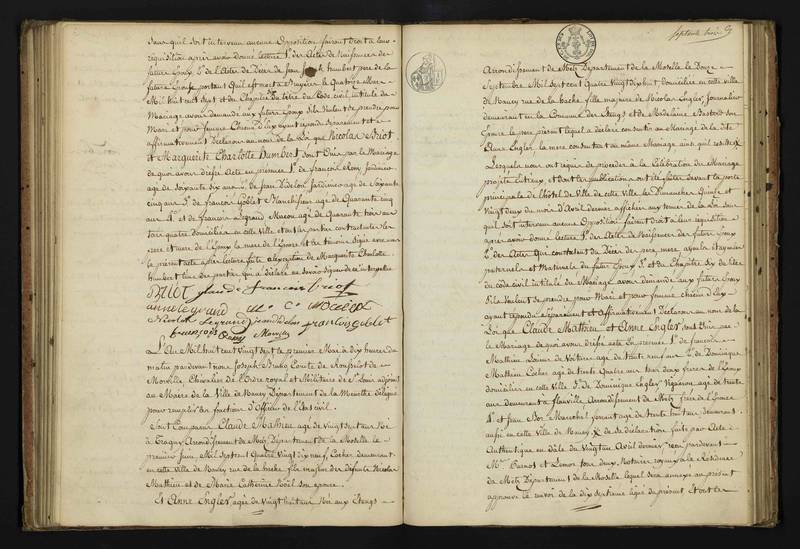 Sans qu'il soit intervenu aucune Opposition faisant droit à leur
requisition après avoir donné lecture 1º des Actes de Naissances des
futurs Epoux 2º de l'Acte de Décès de Jean Humbert père de la
future Epouse portant qu'il est mort à le Quatorze
Mil huit cent sept et du Chapitre Six du titre du Code civil intitulé du
Mariage avons demandé aux futurs Epoux s'ils veulent se prendre pour
Mari et pour femme Chacun d'Eux ayant répondu séparément et
affirmativement Déclarons au nom de la Loi que Nicolas Briot
et Marguerite Charlotte Humbert sont Unis par le Mariage
de quoi avons dressé Acte en presence 1º de françois Remy Jardinier
agé de soixante six ans 2º de Jean Didelon Jardinier agé de Soixante
cinq ans 3º de françois Goblet Blanchisseur agé de Quarante cinq
ans 4º et de François Legrand Macon agé de Quarante trois ans
tous quatre domiciliés en cette Ville et ont les parties contractantes les
père et mère de l'Epoux la mère de l'Epouse et les témoins signé avec nous
le présent acte après lecture faite à l'exception de Marguerite Charlotte
humbert l'une des parties qui a déclaré ne savoir signer de ce interpellée
Briot claude francois briot
anne legrand
Nicolas Legrand jean didelon francois goblet
françois Remy
L'An Mil huit cent vingt deux le premier Mai à dix heures du
matin pardevant nous Joseph Bruno Comte de
Morville Chevalier de l'Ordre royal et Militaire de St Louis adjoint
au Maire de la Ville de Nancy Département de la Meurthe délégué
pour remplir les fonctions d'Officier de l'Etat civil.
Sont Comparus Claude Mathieu agé de Vingt deux ans Né
à Tragny Arrondissement de Metz Département de la Moselle le
premier Juin Mil Sept cent Quatre Vingt dix neuf, Cocher demeurant
en cette Ville de Nancy rue de la hache fils majeur des défunts Nicolas
Mathieu et de Marie Catherine Noël son épouse.
Et Anne Engler agée de Vingt huit ans Née aux Etangs
Septante trois
Arrondissement de Metz Département de la Moselle le Douze
Septembre Mil sept cent Quatre Vingt dix huit, domiciliée en cette ville
de Nancy rue de la hache fille majeure de Nicolas Engler, Journalier
demeurant en la Commune des Etangs et de Madelaine Bastod son
Epouse le père présent lequel a déclaré consentir au Mariage de la dite
Anne Engler, la mère consentant au même Mariage ainsi qu'il resulte X
Lesquels nous ont requis de procéder à la Célébration du Mariage
projeté entr'eux et dont les publications ont été faites devant la porte
principale de l'hôtel de Ville de cette Ville les Dimanches Quinze et
Vingt deux du mois d'Avril dernier affichées aux termes de la Loi sans
qu'il soit intervenu aucune Opposition faisant droit à leur requisition
après avoir donné lecture 1º des Actes de Naissances des futurs Epoux
2º des Actes qui constatent les Décès des père, mère, ayeuls et ayeules
paternels et Maternels du futur Epoux 3º et du Chapitre Six du titre
du code civil intitulé du Mariage avons demandé aux futurs Epoux
s'ils veulent se prendre pour Mari et pour femme chacun d'Eux
ayant répondu séparément et Affirmativement Déclarons au nom de la
Loi que Claude Mathieu et Anne Engler sont Unis par
le Mariage de quoi avons dressé acte en presence 1º de francois
Mathieu Loueur de Voitures agé de trente neuf ans 2º de Dominique
Mathieu Cocher agé de trente Quatre ans tous deux frères de l'Epoux
domiciliés en cette Ville 3º de Dominique Engler Vigneron agé de trente
ans demeurant à flanville Arrondissement de Metz frère de l'Epouse
4º et Jean Marechal ferrant agé de trente huit ans demeurant
aussi en cette Ville de Nancy X de sa déclaration faite par Acte
Authentique en date du Vingt un Avril dernier reçu pardevant
Me Purnot et Lemor tous deux Notaires royaux à la Residence
de Metz Département de la Moselle lequel sera annexé au présent
approuvé le renvoi de la dix septieme ligne du présent Et ont les